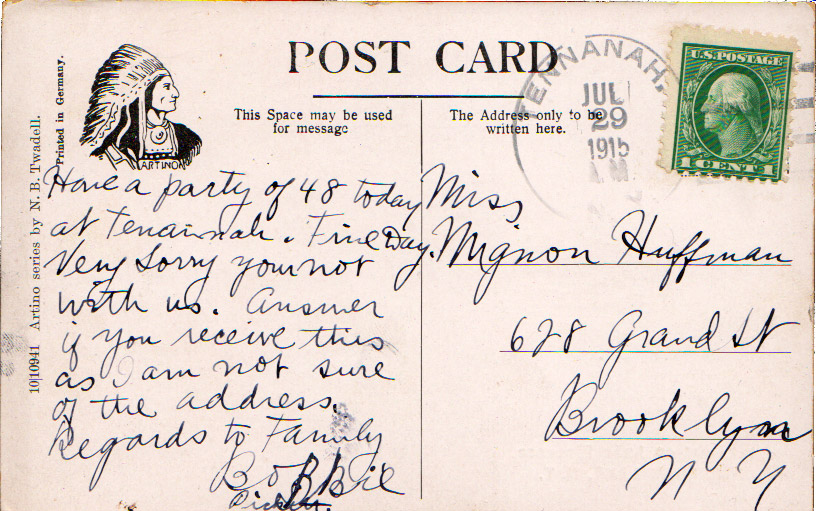 POST CARD
This Space may be used
for message
The Address only to be
written here.
TENNANAH.
JUL
29
1915
U.S. POSTAGE
1 CENT 1
Printed in Germany.
10|10941 Artino series by N. B. Twadell.
ARTINO
Have a party of 48 today
at Tenannah. Fine Day.
Very Sorry your not
with us. Answer
if you receive this
as I am not sure
of the address.
Regards to Family
Bobbie
Miss
Mignon Huffman
628 Grand St
Brooklyn
N Y